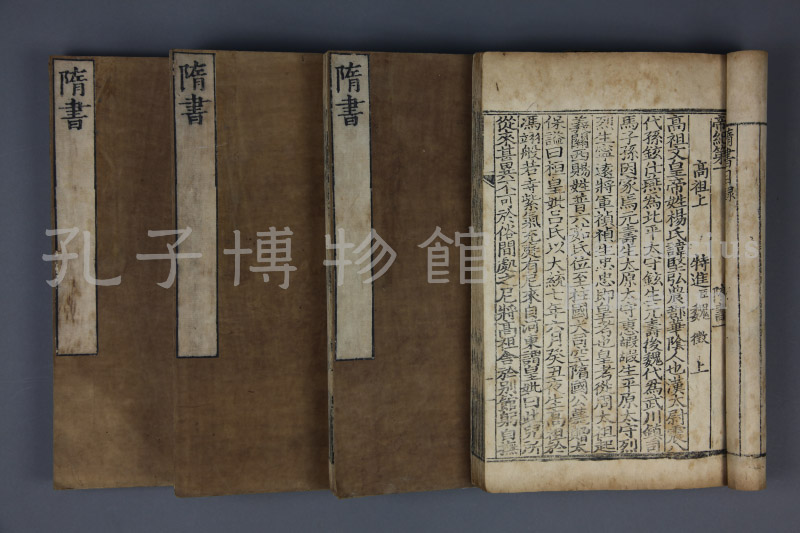 隋書
隋書
隋書
帝紀第一
隋書一
高祖上　特進臣魏徵上
高祖文皇帝姓楊氏諱堅弘農郡華陰人也漢太尉震八
代孫鉉仕燕為北平太守鉉生元壽後魏代為武川鎮司
馬子孫因家焉元壽生太原太守惠嘏嘏生平原太守烈
烈生寧遠將軍禎禎生忠忠即皇考也皇考從周太祖起
義關西賜姓普六茹氏位至柱國大司空隋國公薨贈太
保謚曰桓皇妣呂氏以大統七年六月癸丑夜生高祖於
馮翊般若寺紫氣充庭有尼來自河東謂皇妣曰此兒所
從來甚異不可於俗間處之尼將高祖舍於別館躬自撫
孔子博物館